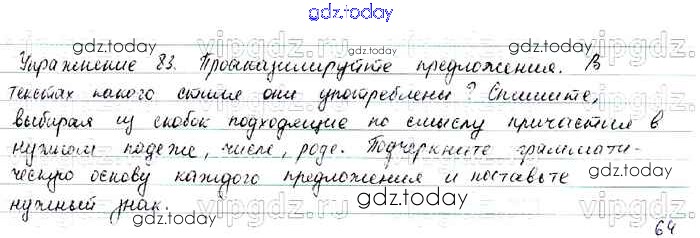 gdz.today
Упражнение 83. Проанализируйте предложения. В
текстах какого стиля они употреблены? Спишите,
выбирая из скобок подходящие по смыслу причастия в
нужном падеже, числе, роде. Подчеркните граммати-
ческую основу каждого предложения и поставьте
нужный знак.
64
gdz.today
gdz.today
gdz.today
gdz.today
gdz.today
gdz.today
vipgdz.ru
vipgdz.ru
vipgdz.ru
vipgdz.ru